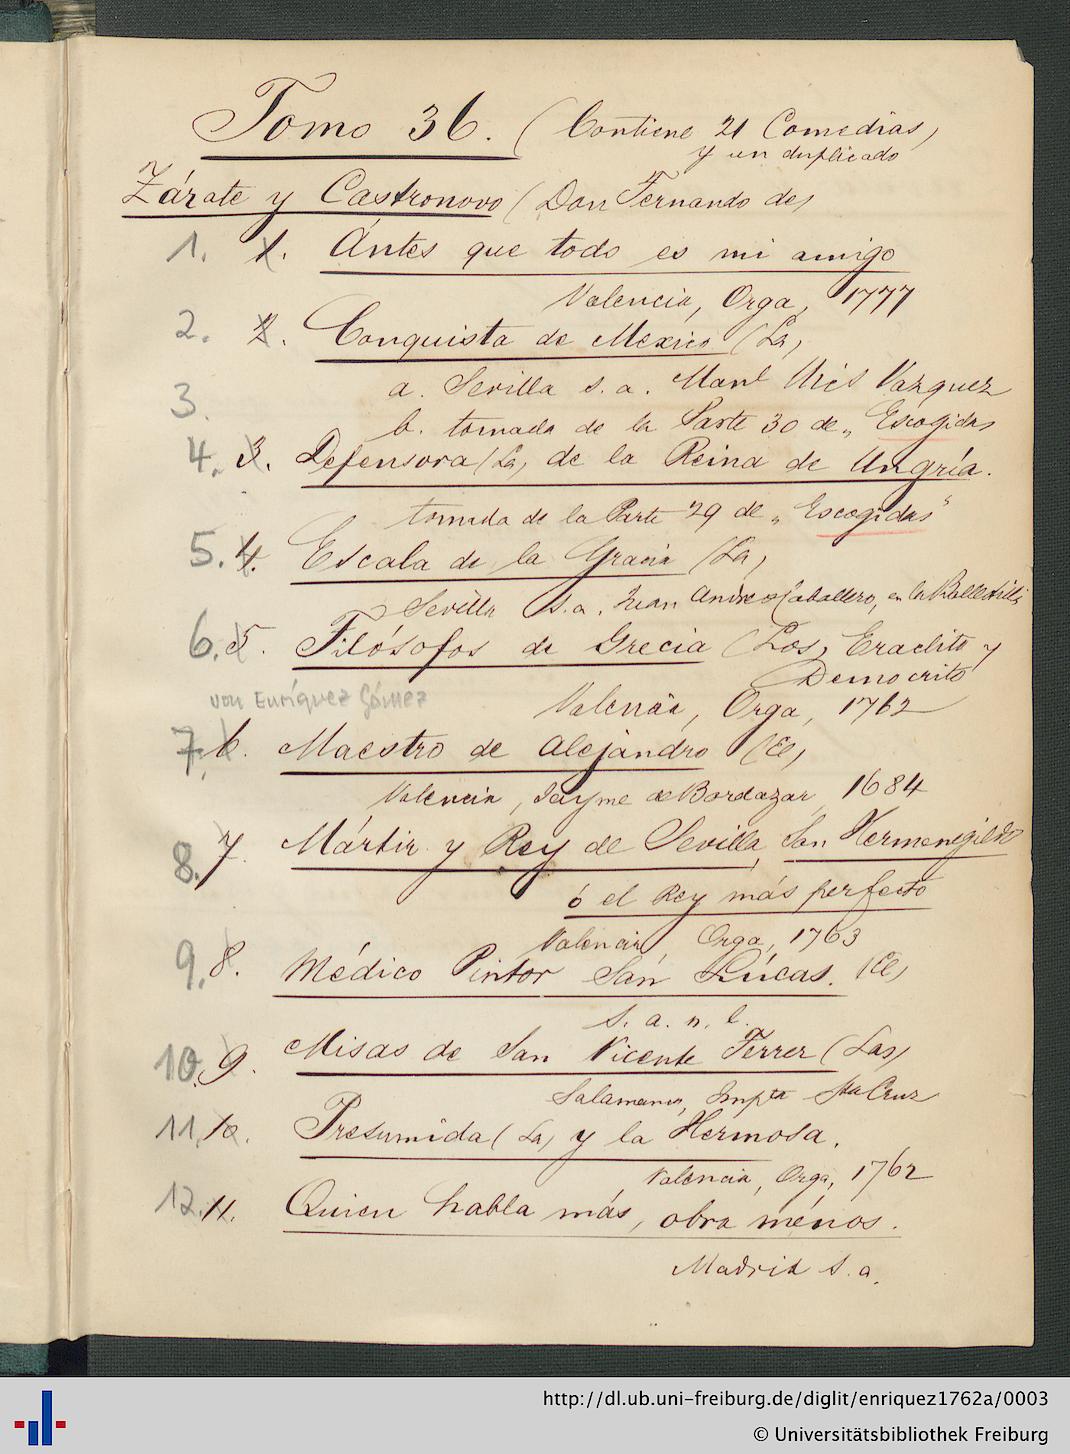 Tomo 36. (Contiene 21 Comedias)
y un duplicado
Zárate y Castronovo (Don Fernando de)
1. 1. Ántes que todo es mi amigo
Valencia, Orga, 1777
2. 2. Conquista de Mexico (La)
3. a. Sevilla s. a. Manl Vazquez
b. tomada de la Parte 30 de „Escogidas
4. 3. Defensora (La) de la Reina de Ungría.
tomada de la Parte 29 de „Escogidas“
5. 4. Escala de la Gracia (La)
Sevilla s. a. Juan Andres Caballero, en la
6. 5. Filósofos de Grecia (Los) Eraclito y
Democrito
von Enríquez Gómez
Valencia, Orga, 1762
7. 6. Maestro de Alejandro (El)
Valencia, Jayme de Bordazar, 1684
8. 7. Mártir y Rey de Sevilla, San Hermenegildo
ó el Rey más perfecto
Valencia Orga, 1763
9. 8. Médico Pintor San Lúcas. (El)
s. a. n. l.
10. 9. Misas de San Vicente Ferrer (Las)
Salamanca, Impta Sta Cruz
11. 10. Presumida (La) y la Hermosa.
Valencia, Orga, 1762
12. 11. Quien habla más, obra ménos.
Madrid s. a.
http://dl.ub.uni-freiburg.de/diglit/enriquez1762a/0003
© Universitätsbibliothek Freiburg